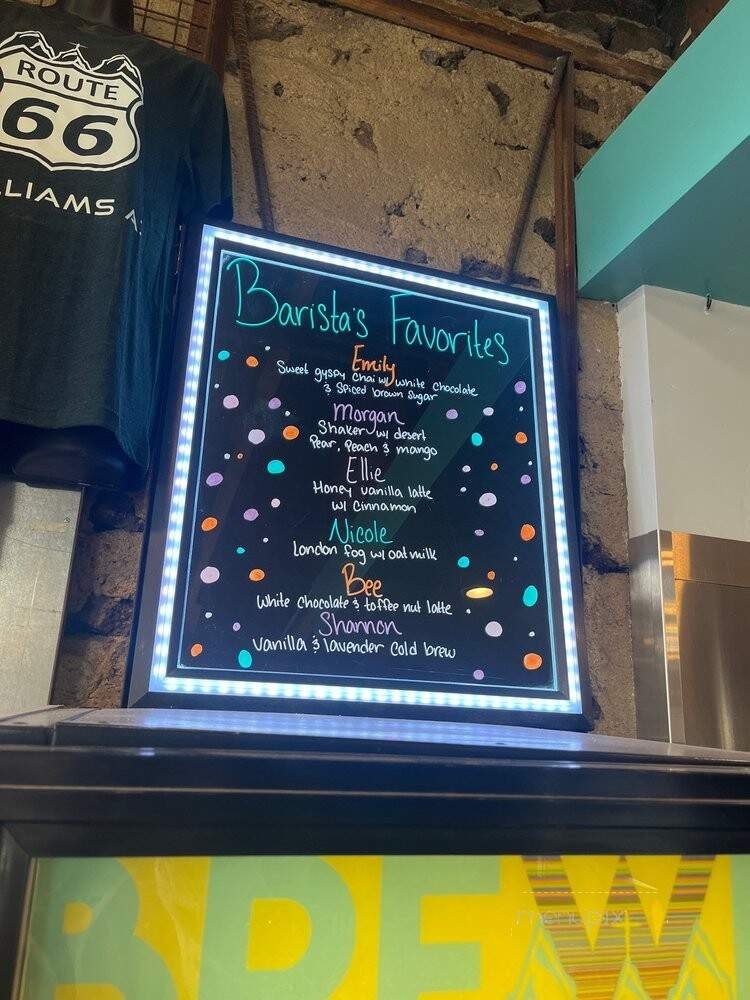 ROUTE
66
LLIAMS A
Barista's Favorites
Emily
Sweet gyspy chai w/ white chocolate
& Spiced brown sugar
Morgan
Shaker w/ desert
Pear, Peach & mango
Ellie
Honey vanilla latte
w/ Cinnamon
Nicole
London fog w/ oat milk
Bee
White chocolate & toffee nut latte
Shannon
Vanilla & lavender cold brew
BREW
menupix